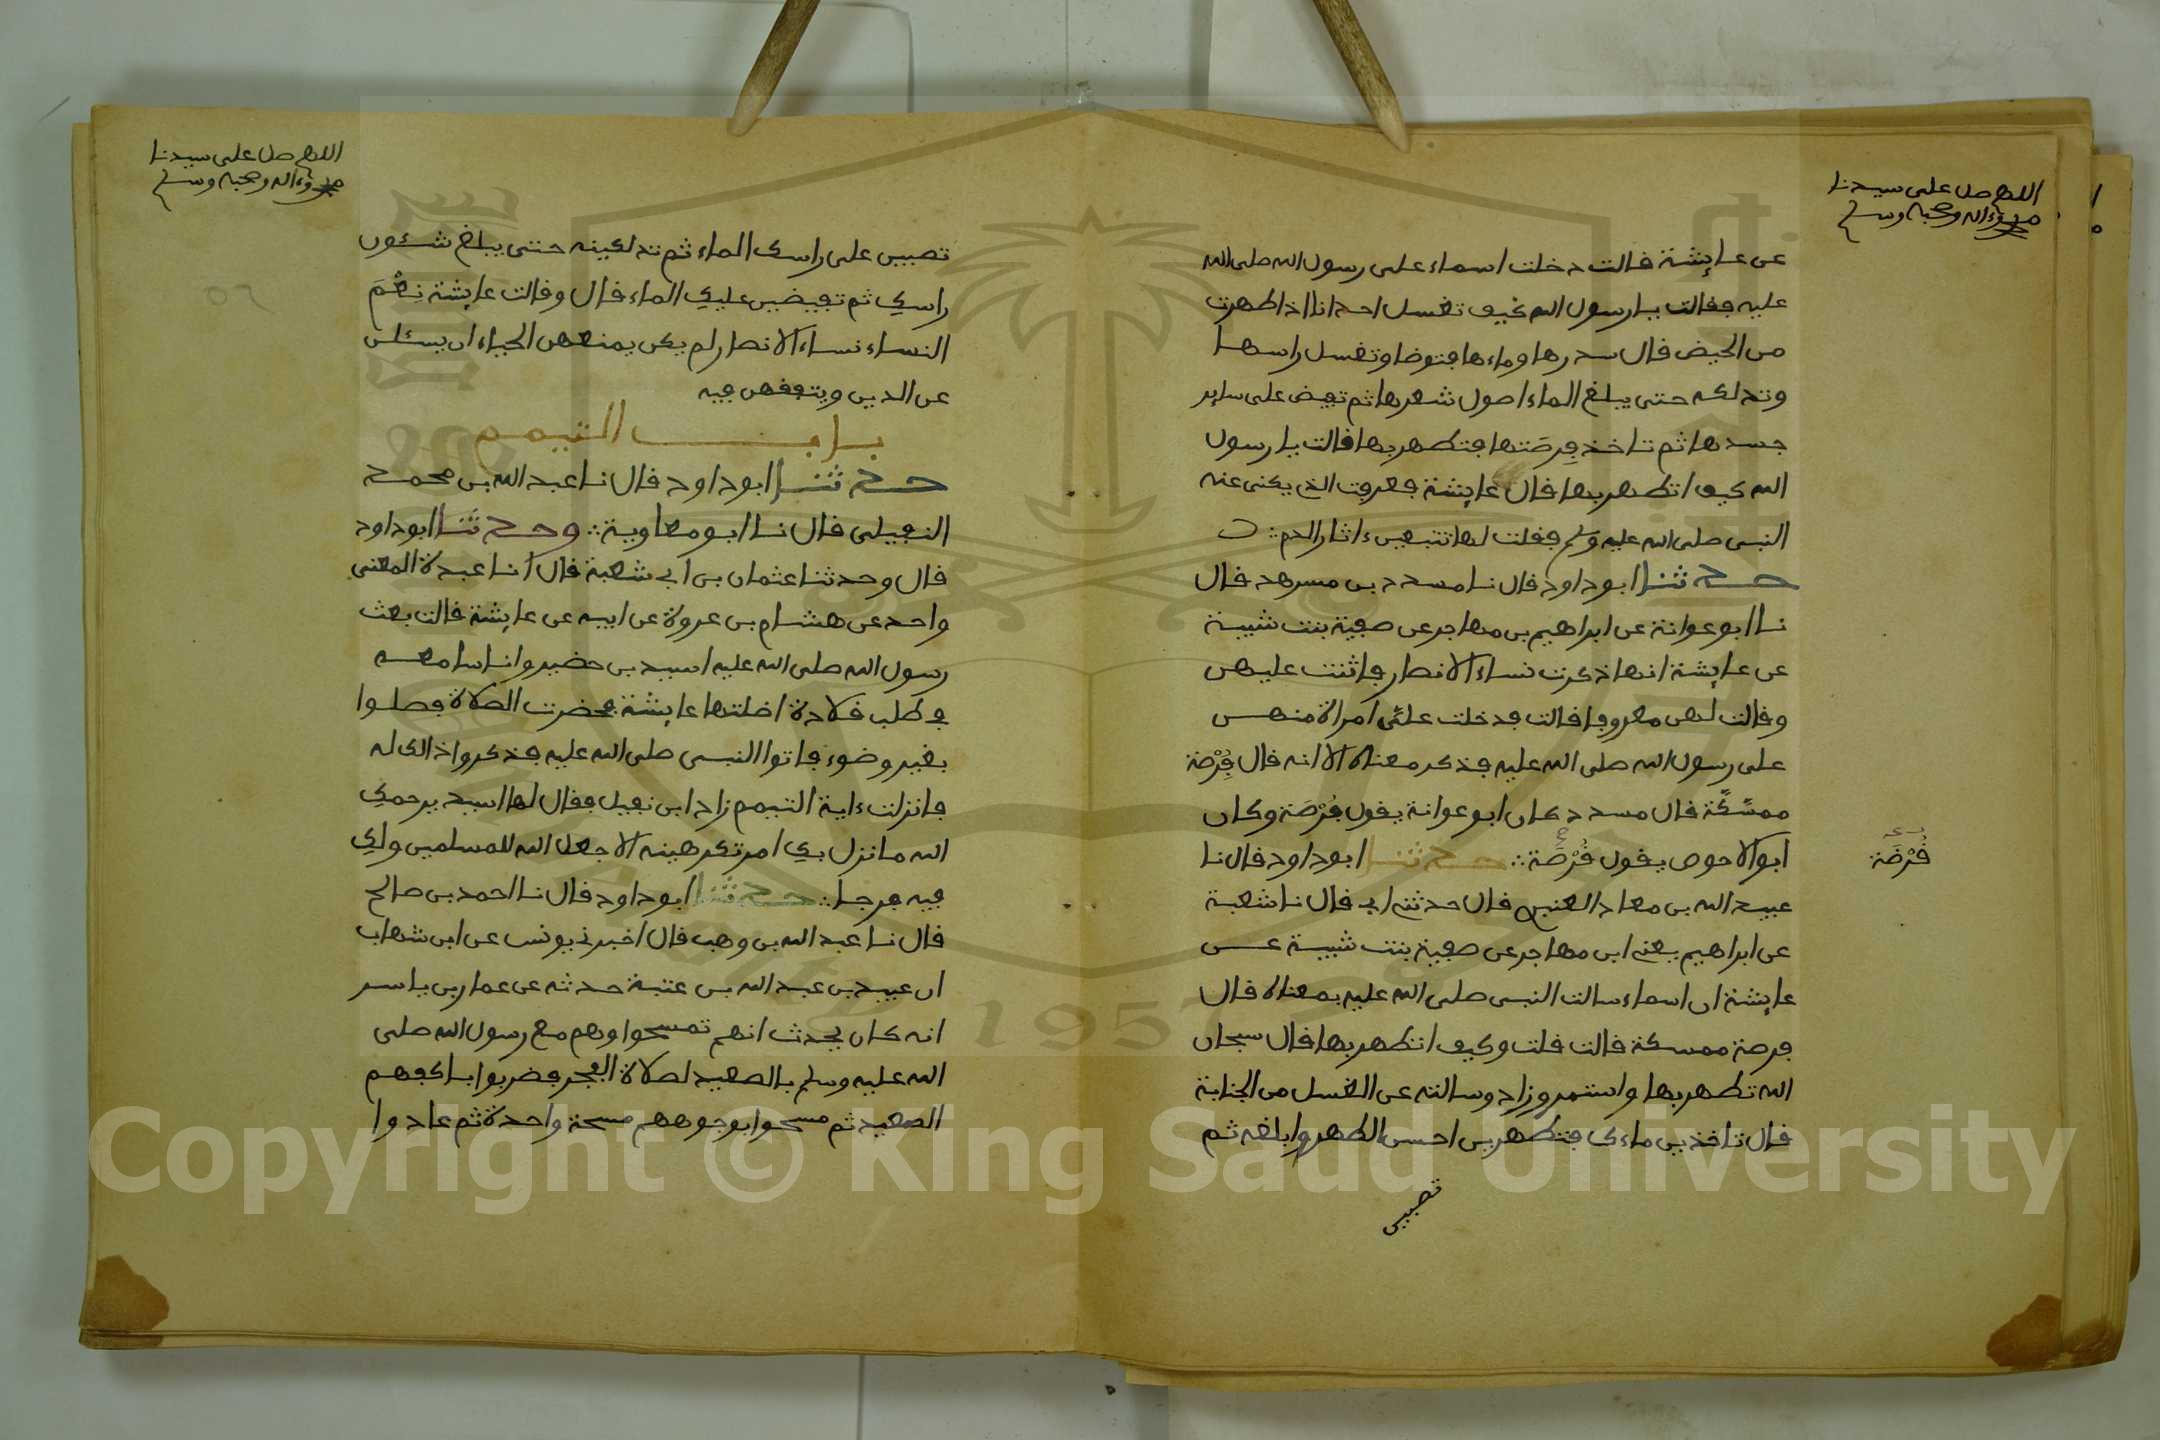 اللهم صل على سيدنا
محمد وءاله وصحبه وسلم
عن عايشة قالت دخلت اسماء على رسول الله صلى الله
عليه فقالت يا رسول الله كيف تغسل احدانا اذا طهرت
من الحيض قال سدرها وماءها فتوضا وتغسل راسها
وتدلكه حتى يبلغ الماء اصول شعرها ثم تفيض على ساير
جسدها ثم تاخذ فِرصَتها فتطهر بها قالت يا رسول
الله كيف اتطهر بها قال عايشة فعرفت الذي يكنى عنه
النبي صلى الله عليه وسلم فقلت لها تتبعين ءاثار الدم
حدثنا ابو داود قال نا مسدد بن مسرهد قال
نا ابو عوانة عن ابراهيم بن مهاجر عن صفية بنت شيبة
عن عايشة انها ذكرت نساء الانصار فاثنت عليهن
وقالت لهن معروفا قالت فدخلت علَى امراة منهن
على رسول الله صلى الله عليه فذكر معناه الا انه قال فِرْصَة
ممسَّكَة قال مسدد كان ابو عوانة يقول فِرْصَة وكان
ابو الاحوص يقول قُرْصَة حدثنا ابو داود قال نا
قُرْضَة
عبيد الله بن معاذ العنبري قال حدثني ابي قال نا شعبة
عن ابراهيم يعني ابن مهاجر عن صفية بنت شيبة عن
عايشة ان اسماء سالت النبي صلى الله عليه بمعناه قال
فرصة ممسكة قالت قلت وكيف اتطهر بها قال سبحان
الله تطهر بها واستتر وزاد وسالته عن الغسل من الجنابة
قال تاخذين ماءك فتطهرين احسن الطهر وابلغه ثم
تصبين
اللهم صل على سيدنا
محمد وءاله وصحبه وسلم
تصبين على راسك الماء ثم تدلكينه حتى يبلغ شئون
راسكِ ثم تفيضين عليكِ الماء قال وقالت عايشة نِعْمَ
النساء نساء الانصار لم يكن يمنعهن الحياء ان يسئلن
عن الدين ويتفقهن فيه
باب التيمم
حدثنا ابو داود قال نا عبد الله بن محمد
النفيلي قال نا ابو معاوية وحدثَنا ابو داود
قال وحدثنا عثمان بن ابي شعبة قال انا عبدة المعنى
واحد عن هشام بن عروة عن ابيه عن عايشة قالت بعث
رسول الله صلى الله عليه اسيد بن حضير واناسا معه
في طلب قلادة اضلتها عايشة فحضرت الصلاة فصلوا
بغير وضوء فاتوا النبي صلى الله عليه فذكروا ذالك له
فانزلت ءاية التيمم زاد ابن نفيل فقال لها اسيد يرحمكِ
الله ما نزل بكِ امر تكرهينه الا جعل الله للمسلمين ولكِ
فيه فرجا حدثَنا ابو داود قال نا احمد بن صالح
قال نا عبد الله بن وهب قال اخبرني يونس عن ابن شهاب
ان عبيد بن عبد الله بن عتبة حدثه عن عمار بن ياسر
انه كان يحدث انهم تمسحوا وهم مع رسول الله صلى
الله عليه وسلم بالصعيد لصلاة الفجر فضربوا باكفهم
الصعيد ثم مسحوا بوجوههم مسحة واحدة ثم عادوا
1957
Copyright © King Saud University